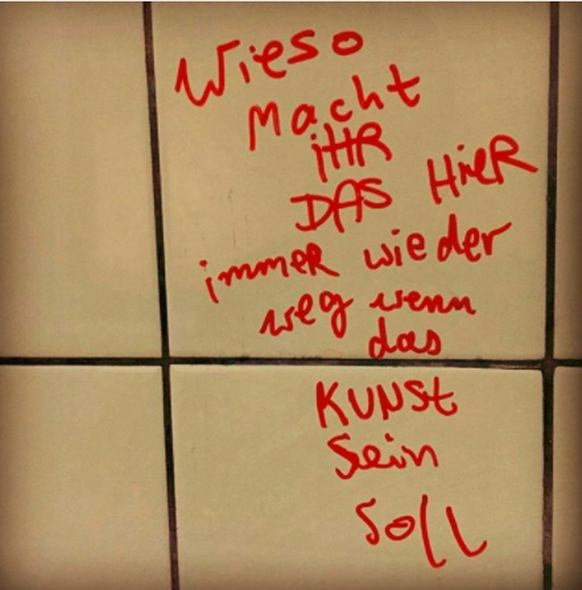 Wieso
Macht
iHR
DAS HieR
immeR wieder
weg wenn
das
KUNSt
Sein
Soll